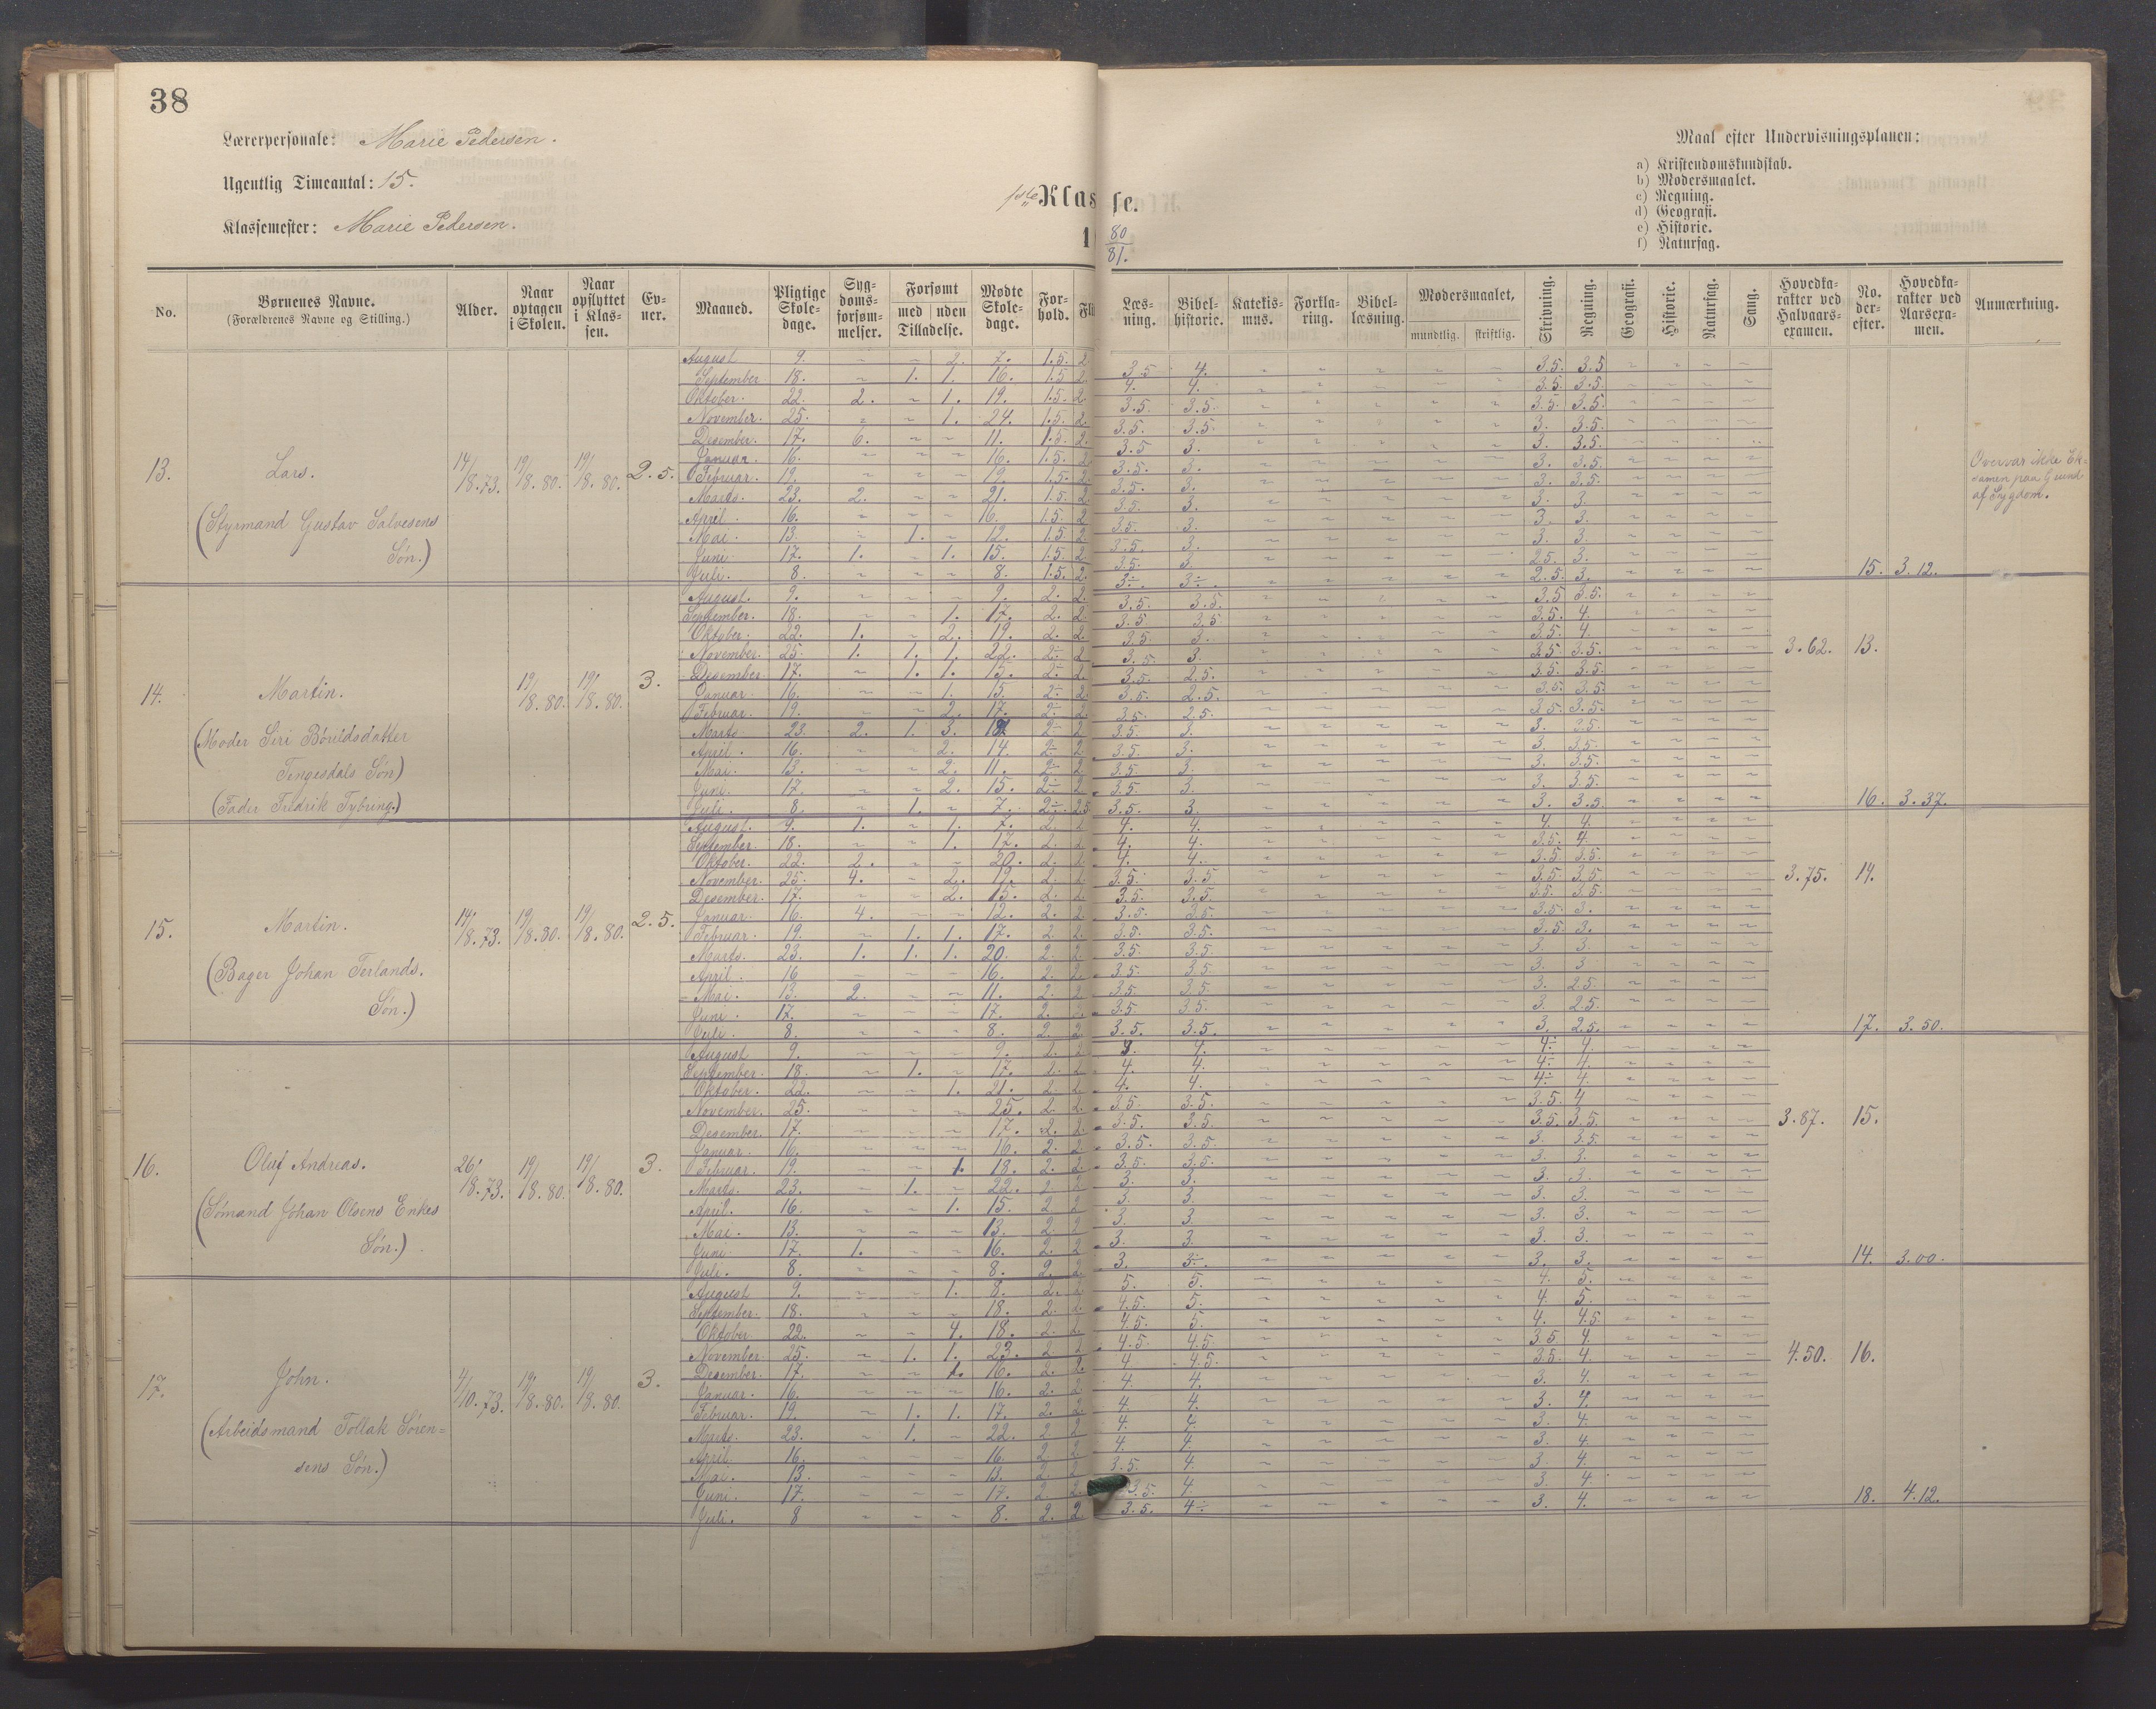 38
Lærerpersonale: Marie Pedersen.
Ugentlig Timeantal: 15.
Klassemester: Marie Pedersen.
1ste Klasse.
80
81.
Maal efter Undervisningsplanen:
a) Kristendomskundskab.
b) Modersmaalet.
c) Regning.
d) Geografi.
e) Historie.
f) Naturfag.
No. Børnenes Navne. (Forældrenes Navne og Stilling.) Alder. Naar optagen i Skolen. Naar opflyttet i Klassen. Evner. Maaned. Pligtige Skoledage. Sygdomsforsømmelser. Forsømt med uden Tilladelse. Mødte Skoledage. Forhold. Læsning. Bibelhistorie. Katekismus. Forklaring. Bibellæsning. Modersmaalet, mundtlig. skriftlig. Skrivning. Regning. Geografi. Historie. Naturfag. Sang. Hovedkarakter ved Halvaarsexamen. No. derefter. Hovedkarakter ved Aarsexamen. Anmærkning.
13. Lars. 14/8.73. 19/8.80. 19/8.80. 2.5.
(Styrmand Gustav Salvesens
Søn.)
August 9. ~ ~ 2. 7. 1.5. 2. 3.5 4. 3.5. 3.5
September 18. ~ 1. 1. 16. 1.5 2. 4. 4. 3.5. 3.5.
Oktober. 22. 2. ~ 1. 19. 1.5. 2. 3.5. 3.5. 3.5. 3.5.
November. 25. ~ ~ 1. 24. 1.5. 2. 3.5. 3.5. 3. 3.5.
Desember. 17. 6. ~ ~ 11. 1.5. 2. 3.5 3. 3. 3.5.
Januar. 16. ~ ~ ~ 16. 1.5. 2. 3.5. 3. 3. 3.5.
Februar. 19. ~ ~ ~ 19. 1.5. 2. 3.5. 3. 3. 3.5.
Marts. 23. 2. ~ ~ 21. 1.5. 2. 3.5. 3. 3. 3.
April. 16. ~ ~ ~ 16. 1.5. 2 3.5. 3. 3. 3.
Mai. 13. ~ 1. ~ 12. 1.5. 2. 3.5. 3. 3. 3.
Juni 17. 1. ~ 1. 15. 1.5. 2. 3.5. 3. 2.5. 3.
Juli. 8. ~ ~ ~ 8. 1.5. 2. 3÷. 3÷. 2.5. 3. 15. 3.12.
Overvar ikke Ek-
samen paa Grund
af Sygdom.
14. Martin. 19/8.80. 19/8.80. 3.
(Moder Siri Børildsdatter
Tengesdals Søn)
(Fader Fredrik Tybring.)
August. 9. ~ ~ ~ 9. 2. 2. 3.5. 3.5. 3.5 3.5.
September. 18. ~ ~ 1. 17. 2. 2. 3.5 3.5 3.5. 4.
Oktober. 22. 1. ~ 2. 19. 2. 2. 3.5. 3. 3.5. 4. 3.62. 13.
November. 25. 1. 1. 1. 22. 2÷ 2 3.5. 3. 3.5 3.5.
Desember. 17. ~ 1. 1. 15. 2÷ 2. 3.5. 2.5. 3.5. 3.5.
Januar. 16. ~ ~ 1. 15. 2÷ 2. 3.5. 2.5. 3.5. 3.5.
Februar. 19. ~ ~ 2. 17. 2÷ 2. 3.5. 2.5. 3.5. 3.5.
Marts. 23. 2. 1. 3. 2÷ 2 3.5. 3. 3. 3.5.
April. 16. ~ ~ 2. 14. 2÷ 2 3.5. 3. 3. 3.5.
Mai. 13. ~ ~ 2. 11. 2÷ 2 3.5. 3. 3. 3.5.
Juni. 17. ~ ~ 2. 15. 2÷ 2 3.5. 3. 3. 3.5.
Juli. 8. ~ 1. ~ 7. 2÷ 2.5 3.5. 3. 3. 3.5. 16. 3.37.
15. Martin. 14/8.73. 19/8.80. 19/8.80. 2.5.
(Bager Johan Terlands.
Søn.)
August. 9. 1. ~ 1. 7. 2. 2 4. 4. 4. 4.
September. 18. ~ ~ 1. 17. 2. 2. 4. 4. 3.5. 4.
Oktober. 22. 2. ~ ~ 20. 2. 2. 4. 4. 3.5. 3.5.
November. 25. 4. ~ 2. 19. 2. 2. 3.5. 3.5 3.5. 3.5. 3.75. 14.
Desember. 17. ~ ~ 2. 15. 2. 2. 3.5. 3.5. 3.5. 3.5.
Januar. 16. 4. ~ ~ 12. 2. 2. 3.5. 3.5. 3.5. 3.
Februar. 19. ~ 1. 1. 17. 2. 2. 3.5. 3.5. 3.5. 3.
Marts. 23. 1. 1. 1. 20. 2. 2. 3.5. 3.5. 3. 3
April. 16 ~ ~ ~ 16. 2. 2. 3.5. 3.5 3. 3
Mai. 13. 2. ~ ~ 11. 2. 2 3.5. 3.5. 3. 2.5.
Juni. 17. ~ ~ ~ 17. 2. 3.5. 3.5. 3. 2.5.
Juli. 8. ~ ~ ~ 8. 2. 2. 3.5. 3.5. 3. 2.5. 17. 3.50.
16. Oluf Andreas. 26/8.73. 19/8.80. 19/8.80. 3.
(Sømand Johan Olsens Enkes
Søn.)
August 9. ~ ~ ~ 9. 2. 2 4. 4÷ 4.
September. 18. ~ 1. ~ 17. 2. 2. 4. 4. 4÷ 4.
Oktober. 22. ~ ~ 1. 21. 2. 2. 4. 4. 4÷ 4.
November. 25. ~ ~ ~ 25. 2. 2. 3.5. 3.5. 3.5. 4
Desember. 17. ~ ~ ~ 17. 2. 2. 3.5. 3.5. 3.5. 3.5. 3.87. 15.
Januar. 16. ~ ~ ~ 16. 2. 2 3.5. 3.5. 3. 3.5.
Februar. 19. ~ ~ 1. 18. 2. 2. 3.5. 3.5. 3. 3.
Marts. 23. ~ 1. ~ 22. 2 2 3. 3. 3. 3.
April. 16. ~ ~ 1. 15. 2 2 3. 3. 3. 3.
Mai. 13. ~ ~ ~ 13. 2 2 3. 3. 3. 3.
Juni. 17. 1. ~ ~ 16. 2. 2 3. 3. 3. 3.
Juli. 8. ~ ~ ~ 8. 2. 2. 3. 3÷. 3. 3. 14. 3.00.
17. John. 4/10.73. 19/8.80. 19/8.80. 3.
(Arbeidsmand Tollak Søren=
sens Søn.)
August 9. ~ ~ 1. 8. 2. 2. 5. 5. 4. 5.
September. 18. ~ ~ ~ 18. 2. 2. 4.5. 5. 4. 5.
Oktober 22. ~ ~ 4. 18. 2. 2. 4.5. 5. 4. 4.5.
November. 25. ~ 1. 1. 23. 2 2 4.5. 4.5. 3.5. 4. 4.50. 16.
Desember. 17. ~ ~ 1. 16. 2. 2. 4 4.5. 3.5. 4.
Januar. 16. ~ ~ ~ 16. 2. 2. 4. 4. 3. 4.
Februar. 19. ~ 1. 1. 17. 2. 2. 4. 4. 3. 4.
Marts. 23. ~ 1. ~ 22. 2. 2 4. 4. 3. 4.
April. 16. ~ ~ ~ 16. 2 2 4. 4. 3. 4.
Mai. 13. ~ ~ ~ 13. 2. 2 3.5. 4. 3. 4.
Juni. 17. ~ ~ ~ 17. 2. 2. 3.5. 4. 3. 4.
Juli. 8 ~ ~ ~ 8. 2. 2. 3.5. 4÷ 3. 4. 18. 4.12.